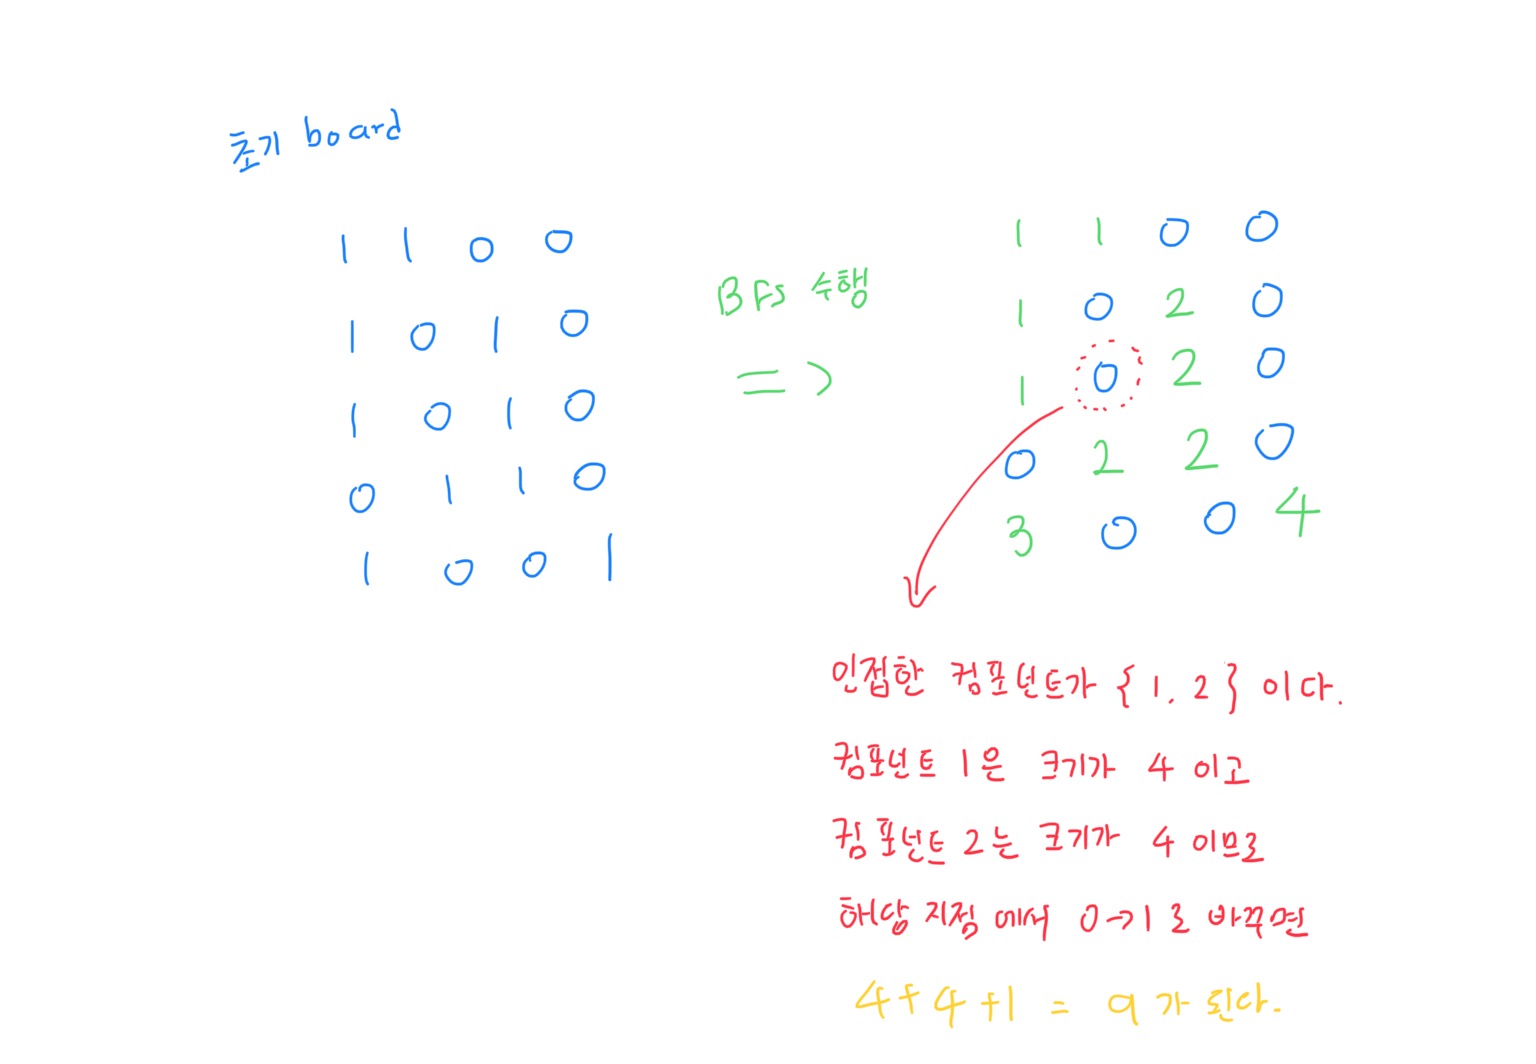 초기 board
1 1 0 0
1 0 1 0
1 0 1 0
0 1 1 0
1 0 0 1
BFS 수행
=>
1 1 0 0
1 0 2 0
1 0 2 0
0 2 2 0
3 0 0 4
인접한 컴포넌트가 {1, 2} 이다.
컴포넌트 1은 크기가 4 이고
컴포넌트 2는 크기가 4 이므로
해당 지점에서 0→1로 바꾸면
4+4+1 = 9가 된다.